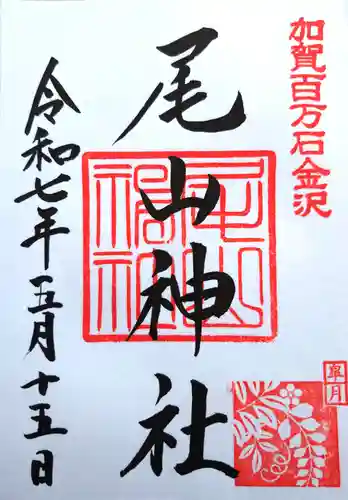 加賀百万石金沢
尾山神社
尾山神社
皐月
令和七年五月十五日